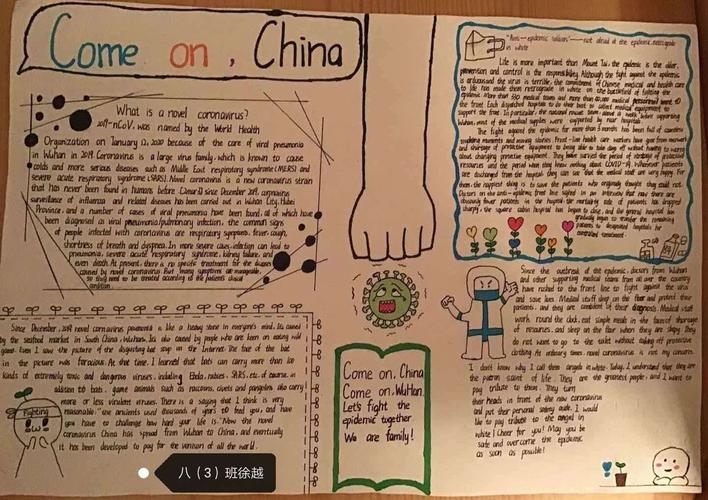 Come on, China
What is a novel coronavirus?
2019-nCoV, was named by the World Health
Organization on January 12, 2020 because of the case of viral pneumonia
in Wuhan in 2019. Coronavirus is a large virus family, which is known to cause
colds and more serious diseases such as Middle East respiratory syndrome (MERS) and
severe acute respiratory syndrome (SARS). Novel coronavirus is a new coronavirus strain
that has never been found in humans before. Since December 2019, coronavirus
surveillance of influenza and related diseases has been carried out in Wuhan City, Hubei
Province, and a number of cases of viral pneumonia have been found, all of which have
been diagnosed as viral pneumonia/pulmonary infection. the common signs
of people infected with coronavirus are respiratory symptoms, fever, cough,
shortness of breath and dyspnea. In more severe cases, infection can lead to
pneumonia, severe acute respiratory syndrome, kidney failure, and
even death. At present, there is no specific treatment for the disease
caused by novel coronavirus. But many symptoms are manageable,
so they need to be treated according to the patient's clinical
condition.
Since December, 2019 novel coronavirus pneumonia is like a heavy stone in everyone's mind. Its caused
by the seafood market in South China, Wuhan. Its also caused by people who are keen on eating wild
game. Even I saw the picture of the disgusting bat soup on the Internet. The face of the bat
in the picture was ferocious. At that time, I learned that bats can carry more than 100
kinds of extremely toxic and dangerous viruses, including Ebola, rabies, SARS, etc. of course, in
addition to bats, game animals such as raccoons, civets and pangolins also carry
more or less virulent viruses. There is a saying that I think is very
reasonable: "the ancients used thousands of years to feed you, and have
you have to challenge how hard your life is." Now the novel
coronavirus China has spread from Wuhan to China, and eventually
it has been developed to pay for the venison all over the world.
Fighting
Come on, China
Come on, WuHan.
Let's fight the
epidemic together
We are family!
"Anti-epidemic soldiers" — not afraid of the epidemic, retrograde
in white
Life is more important than Mount Tai, the epidemic is the order,
prevention and control is the responsibility. Although the fight against the epidemic
is arduous and the virus is terrible, the commitment of Chinese medical and health care
to life has made them retrograde in white on the battlefield of fighting the
epidemic. More than 330 medical teams and more than medical personnel went to
the front. Each dispatched hospital to do their best to collect medical equipment to
support the front. In particular, the national rescue team before supporting
Wuhan, most of the medical supplies were supported by near hospitals.
The fight against the epidemic for more than 3 months has been full of countless
touching moments and moving stories. Front-line health care workers have gone from movement
and shortage of protective equipment to being able to take day off without having to worry
about changing protective equipment. They have survived the period of shortage of protective
resources and the period when they knew nothing about COVID-19. Whenever patients
are discharged from the hospital, they can see that the medical staff are very happy. For
them, the happiest thing is to save the patients who originally thought they could not.
Doctors on the anti-epidemic front line said in an interview that now there are
obviously fewer patients in the hospital, the mortality rate of patients has dropped
sharply, the square cabin hospital has begun to close, and the general hospital has
gradually begun to transfer the remaining
patients to designated hospitals for
centralized treatment.
Since the outbreak of the epidemic, doctors from Wuhan
and other supporting medical teams from all over the country
have rushed to the front line to fight against the virus
and save lives. Medical staff sleep on the floor and protect their
patients, and they are confident of their diagnosis. Medical staff
work round the clock, eat simple meals in the face of shortage
of resources, and sleep on the floor when they are sleepy. They
do not want to go to the toilet without taking off protective
clothing. At ordinary times, novel coronavirus is not my concerns.
I don't know why I call them angels in white. Today, I understand that they are
the patron saint of life. They are the greatest people, and I want to
pay tribute to them. They turn
their heads in front of the new coronavirus
and put their personal safety aside. I would
like to pay tribute to the angel in
white! Cheer for you! May you be
safe and overcome the epidemic
as soon as possible!
八（3）班徐越